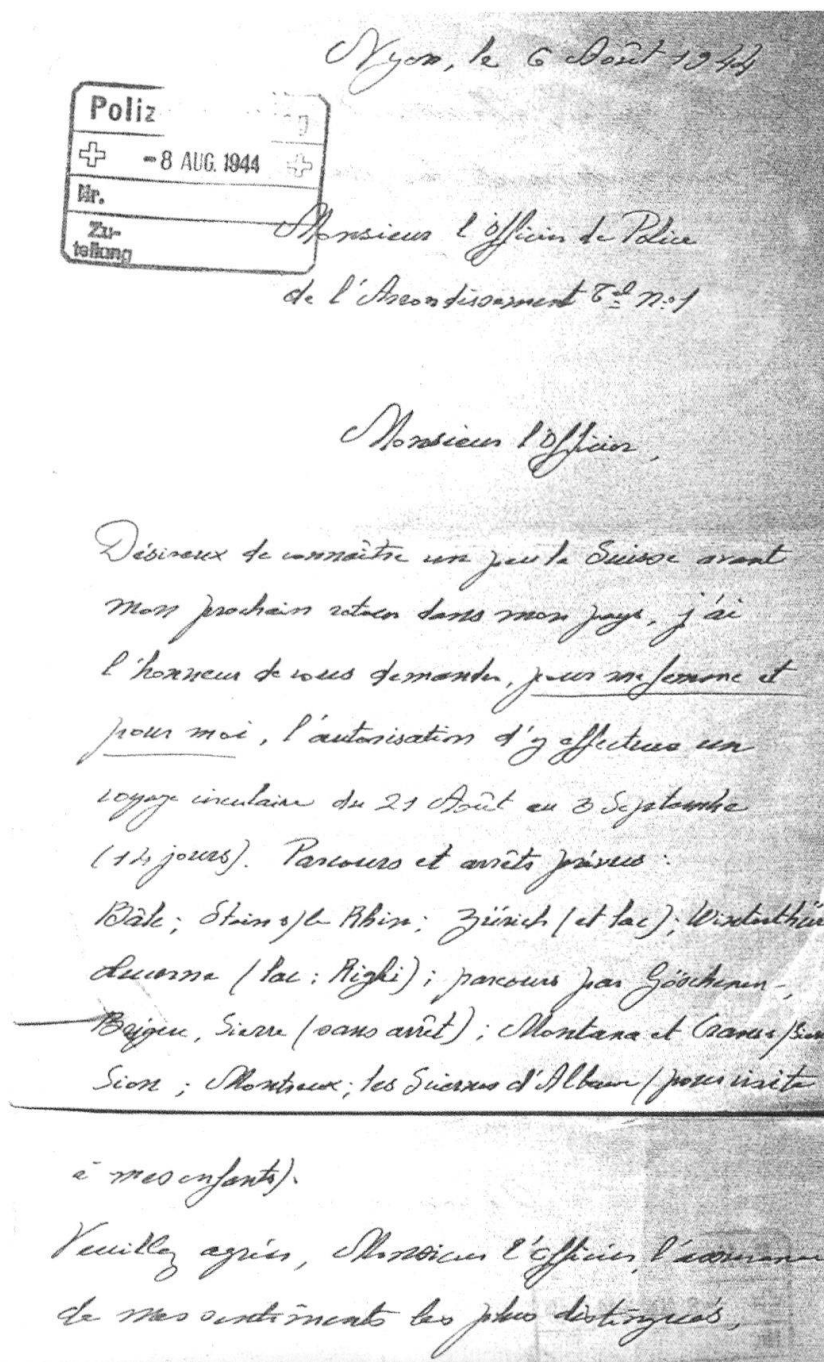 Nyon, le 6 Août 1944
Poliz
- 8 AUG. 1944
Nr.
Zu-
teilung
Monsieur l'Officier de Police
de l'Arrondissement Tal no: 1
Monsieur l'Officier,
Désireux de connaître un peu la Suisse avant
mon prochain retour dans mon pays, j'ai
l'honneur de vous demander, pour ma femme et
pour moi, l'autorisation d'y effectuer un
voyage circulaire du 21 Août au 3 Septembre
(14 jours). Parcours et arrêts prévus :
Bâle ; Stein s/le Rhin ; Zürich (et lac) ; Winterthür
Lucerne (lac : Righi) ; parcours par Göschenen -,
Brigue, Sierre (sans arrêt) ; Montana et Crans s/Sierre
Sion ; Montreux ; les Sciernes d'Albeuve (pour visite
à mes enfants).
Veuillez agréer, Monsieur l'Officier, l'assurance
de mes sentiments les plus distingués,